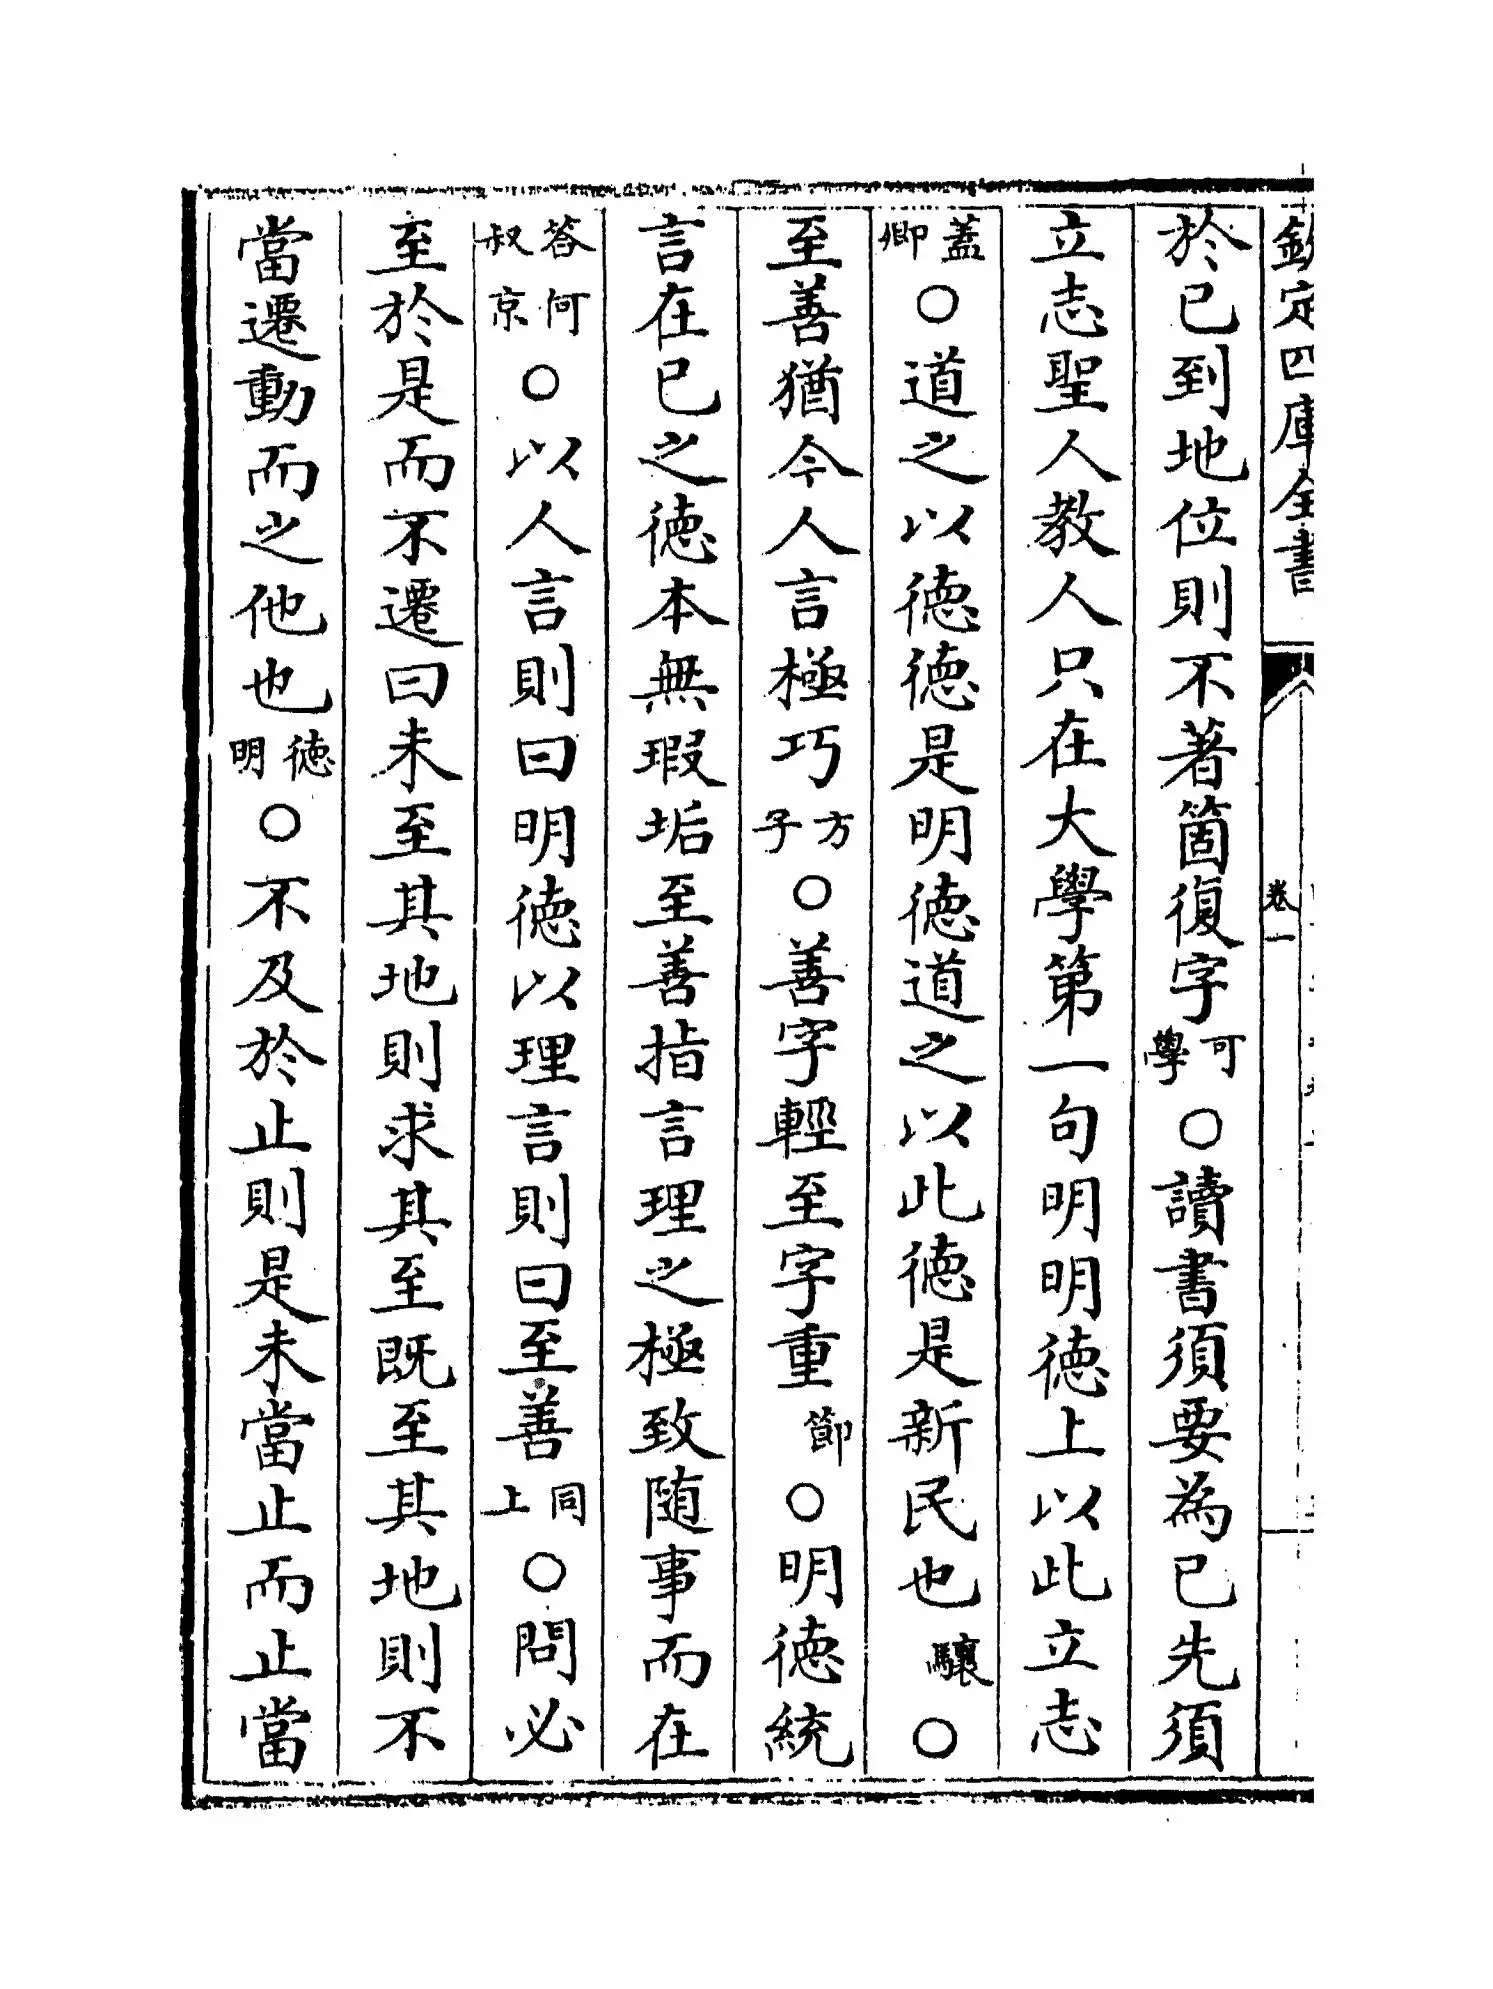 欽定四庫全書
卷一
於已到地位則不著箇復字可學○讀書須要為已先須
立志聖人教人只在大學第一句明明徳上以此立志
蓋卿○道之以徳徳是明徳道之以此徳是新民也驤○
至善猶今人言極巧方子○善字輕至字重節○明徳統
言在已之徳本無瑕垢至善指言理之極致随事而在
答何叔京○以人言則曰明徳以理言則曰至善同上○問必
至於是而不遷曰未至其地則求其至既至其地則不
當遷動而之他也徳明○不及於止則是未當止而止當